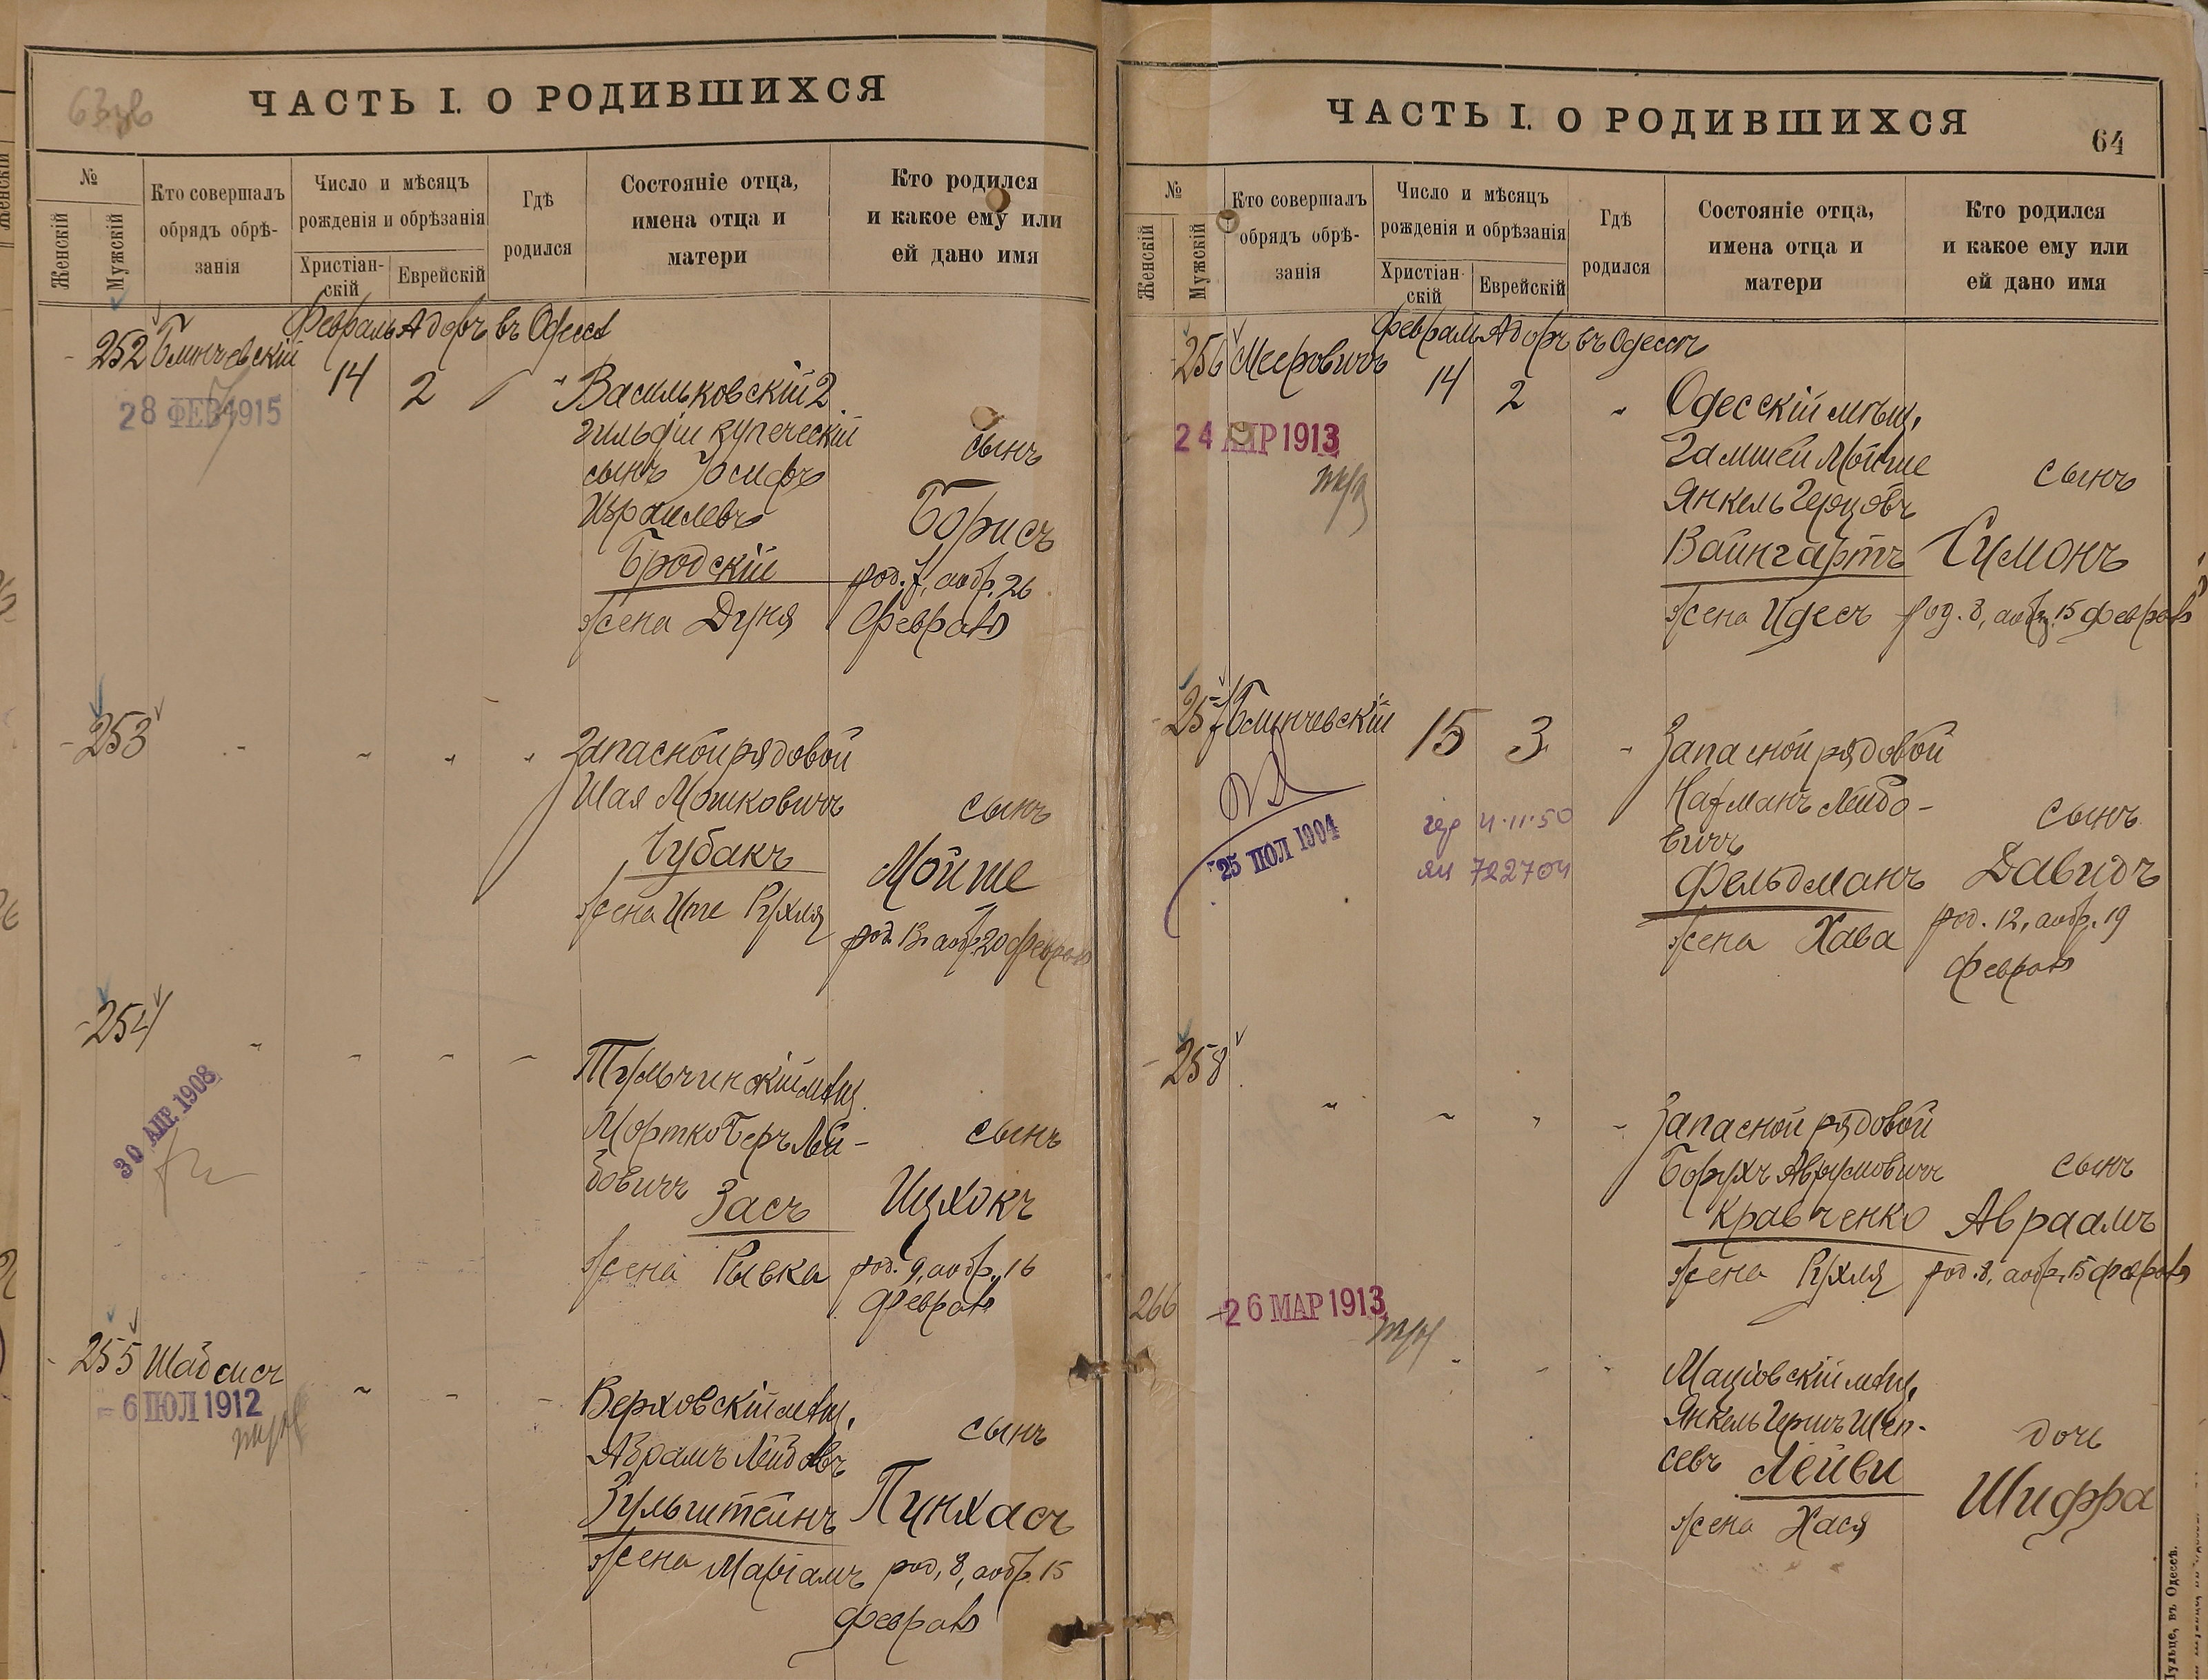 ЧАСТЬ I. О РОДИВШИХСЯ
№
Женскій
Мужскій
Кто совершалъ
обрядъ обрѣ-
занія
Число и мѣсяцъ
рожденія и обрѣзанія
Христіан-
скій
Еврейскій
Гдѣ
родился
Состояніе отца,
имена отца и
матери
Кто родился
и какое ему или
ей дано имя
Февраль Адаръ въ Одессѣ
252 Блинчевскій 14 2
28 ФЕВ 1915
Васильковскій 2
гильдіи купеческій
сынъ Іосифъ
Израилевъ
Бродскій
жена Дуня
сынъ
Борисъ
род. 7, аобр. 26
Февраля
253
Запасной рядовой
Шая Мошковичъ
Чубакъ
жена Ите Рухля
сынъ
Мойше
род. 13, аобр. 20 Февраля
254
30 АПР. 1908
Тульчинскій мѣщ.
Мортко Беръ Лей-
бовичъ
Засъ
жена Рывка
сынъ
Ицхокъ
род. 9, аобр. 16
Февраля
255 Шабсисъ
6 ІЮЛ 1912
Верховскій мѣщ.
Абрамъ Лейбовъ
Зульштейнъ
жена Маріамъ
сынъ
Пинхасъ
род. 8, аобр. 15
Февраля
ЧАСТЬ I. О РОДИВШИХСЯ
64
№
Женскій
Мужскій
Кто совершалъ
обрядъ обрѣ-
занія
Число и мѣсяцъ
рожденія и обрѣзанія
Христіан-
скій
Еврейскій
Гдѣ
родился
Состояніе отца,
имена отца и
матери
Кто родился
и какое ему или
ей дано имя
Февраль Адаръ въ Одессѣ
256 Мееровичъ 14 2
24 АПР 1913
Одесскій мѣщ.
Гамшей Мойше
Янкель Герцовъ
Вайнгартъ
жена Идесъ
сынъ
Симонъ
род. 8, аобр. 15 Февраля
257 Блинчевскій 15 3
25 ІЮЛ 1904
4.11.50
722704
Запасной рядовой
Нахманъ Лейбо-
вичъ
Фельдманъ
жена Хава
сынъ
Давидъ
род. 12, аобр. 19
Февраля
258
Запасной рядовой
Борухъ Аврумовичъ
Кравченко
жена Рухля
сынъ
Авраамъ
род. 8, аобр. 15 Февраля
266
26 МАР 1913
Маціовскій мѣщ.
Янкель Гершъ Шеп-
севъ Лейви
жена Хася
дочь
Шифра